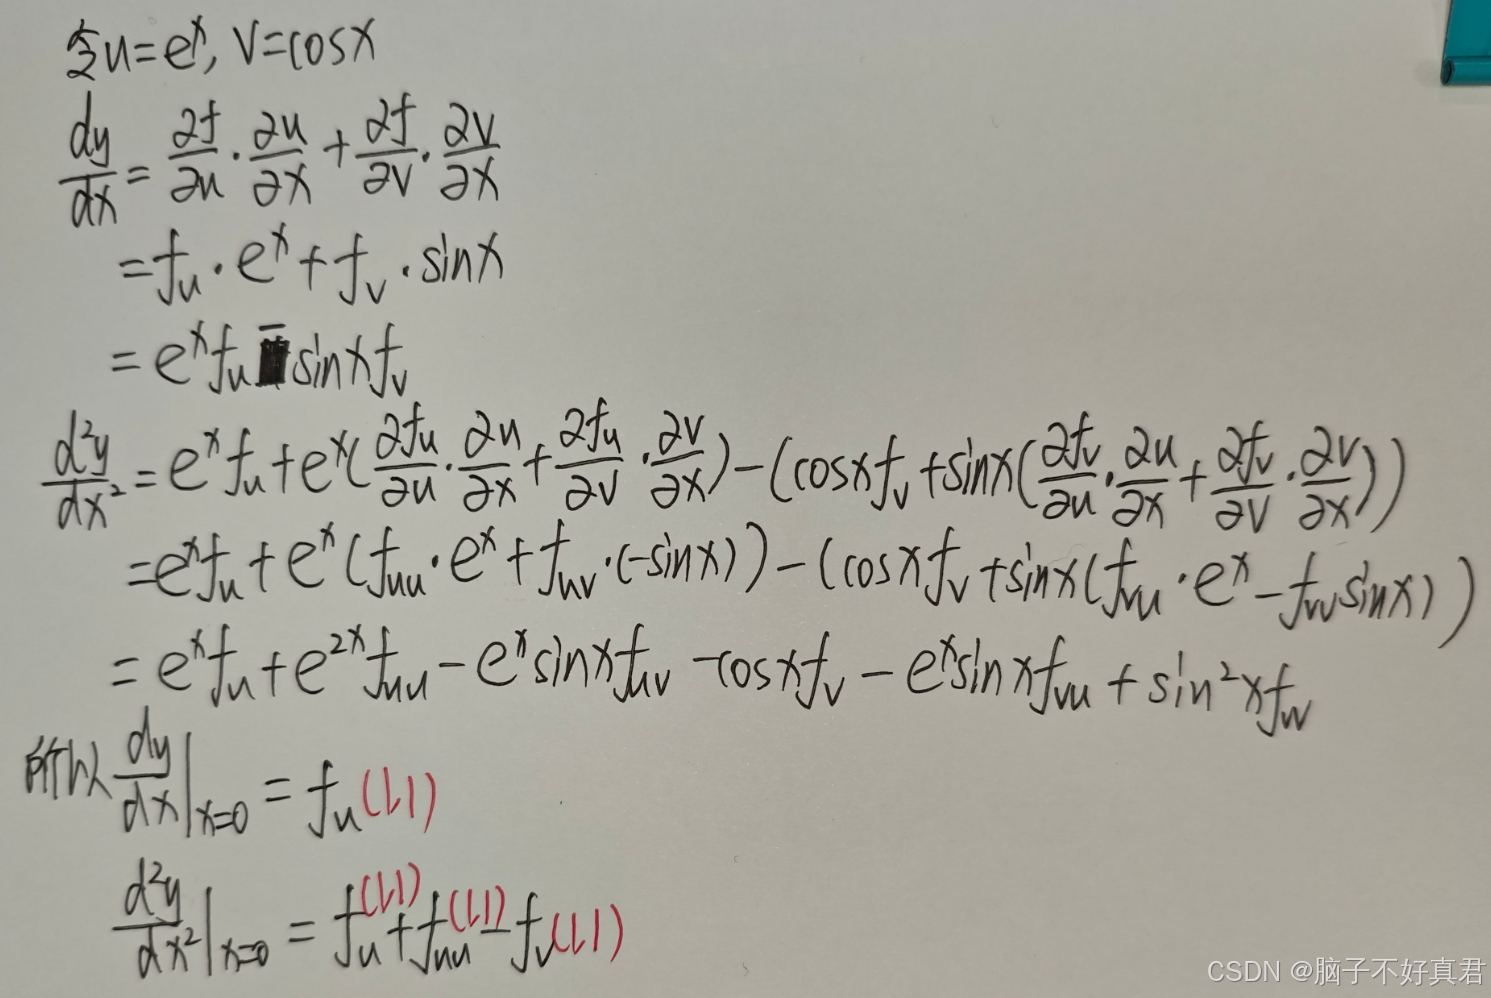 令u=e^x, v=cosx
dy/dx = ∂f/∂u · ∂u/∂x + ∂f/∂v · ∂v/∂x
= f_u · e^x + f_v · sinx
= e^x f_u - sinx f_v
d²y/dx² = e^x f_u + e^x(∂f_u/∂u · ∂u/∂x + ∂f_u/∂v · ∂v/∂x) - (cosx f_v + sinx(∂f_v/∂u · ∂u/∂x + ∂f_v/∂v · ∂v/∂x))
= e^x f_u + e^x(f_uu · e^x + f_uv · (-sinx)) - (cosx f_v + sinx(f_vu · e^x - f_vv sinx))
= e^x f_u + e^{2x} f_uu - e^x sinx f_uv - cosx f_v - e^x sinx f_vu + sin²x f_vv
所以 dy/dx|_{x=0} = f_u(1,1)
d²y/dx²|_{x=0} = f_u(1,1) + f_uu(1,1) - f_v(1,1)
CSDN @脑子不好真君